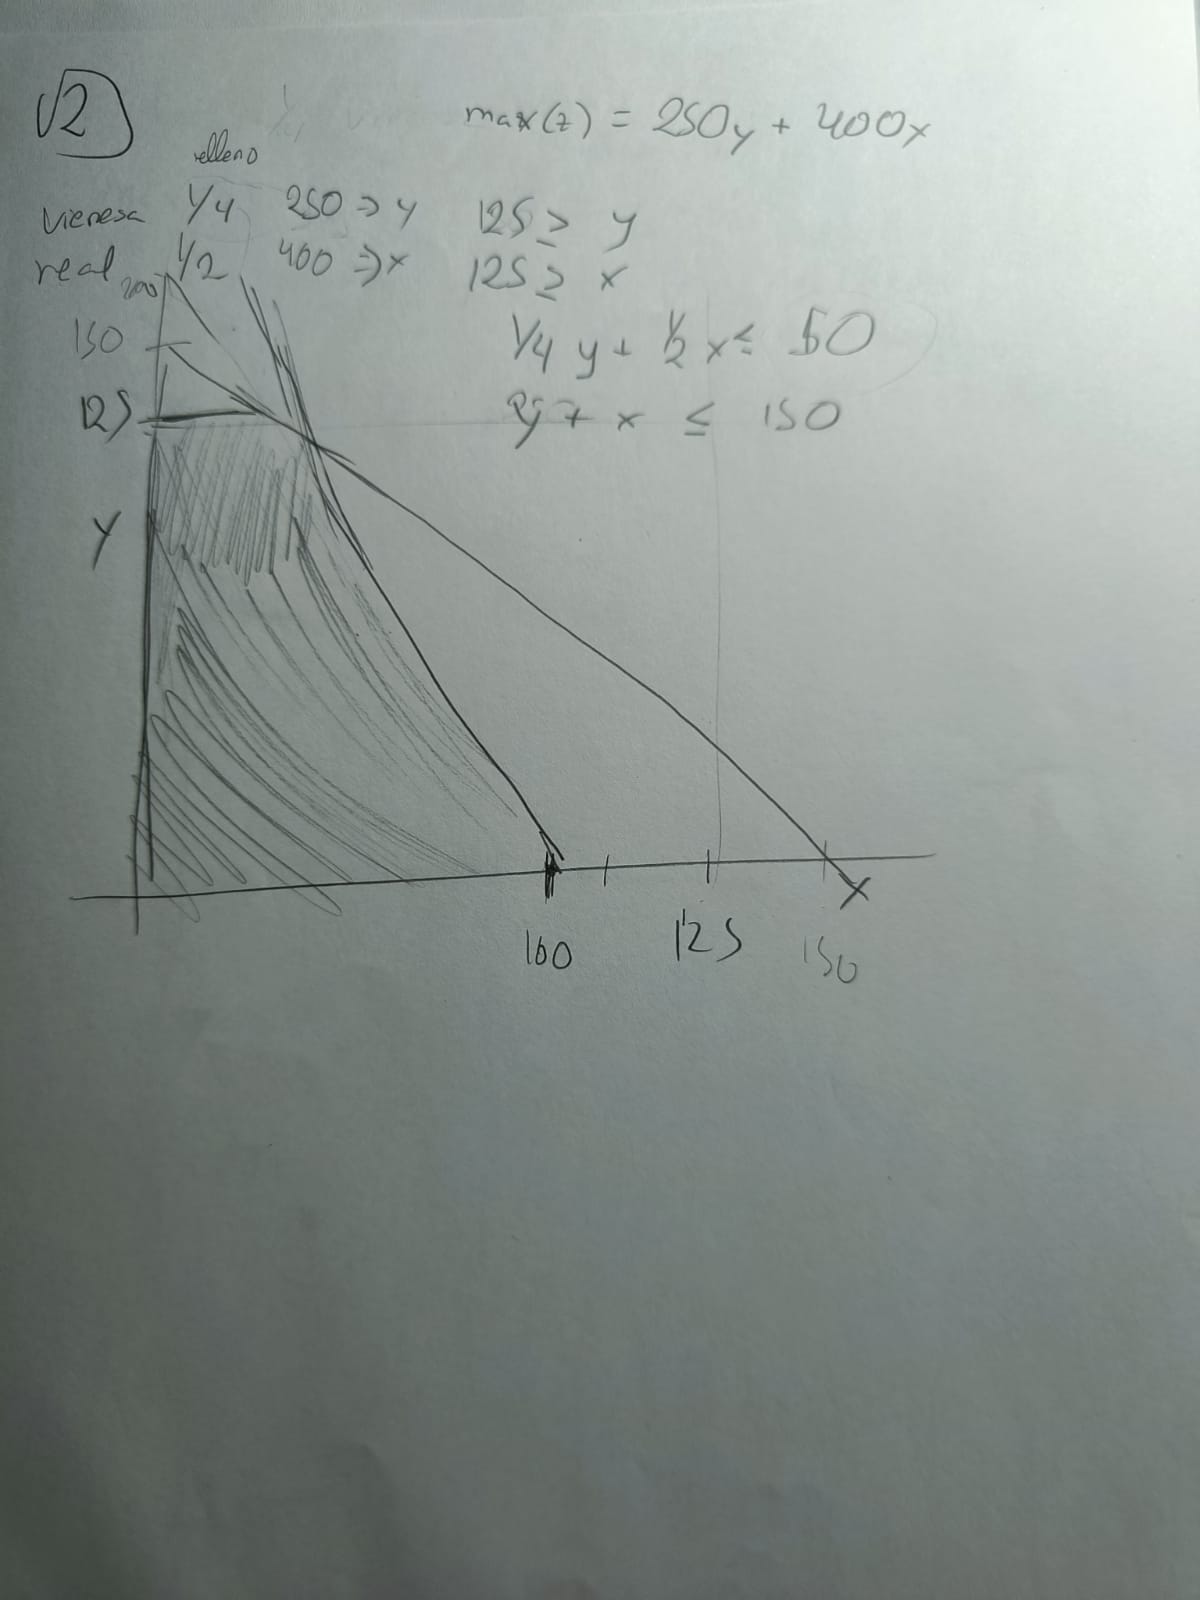 √2
max(z) = 250y + 400x
relleno
vienesa 1/4 250 => y 125 ≥ y
real 1/2 400 => x 125 ≥ x
200
150 1/4 y + 1/2 x ≤ 50
125 + x ≤ 150
y
x
100 125 150